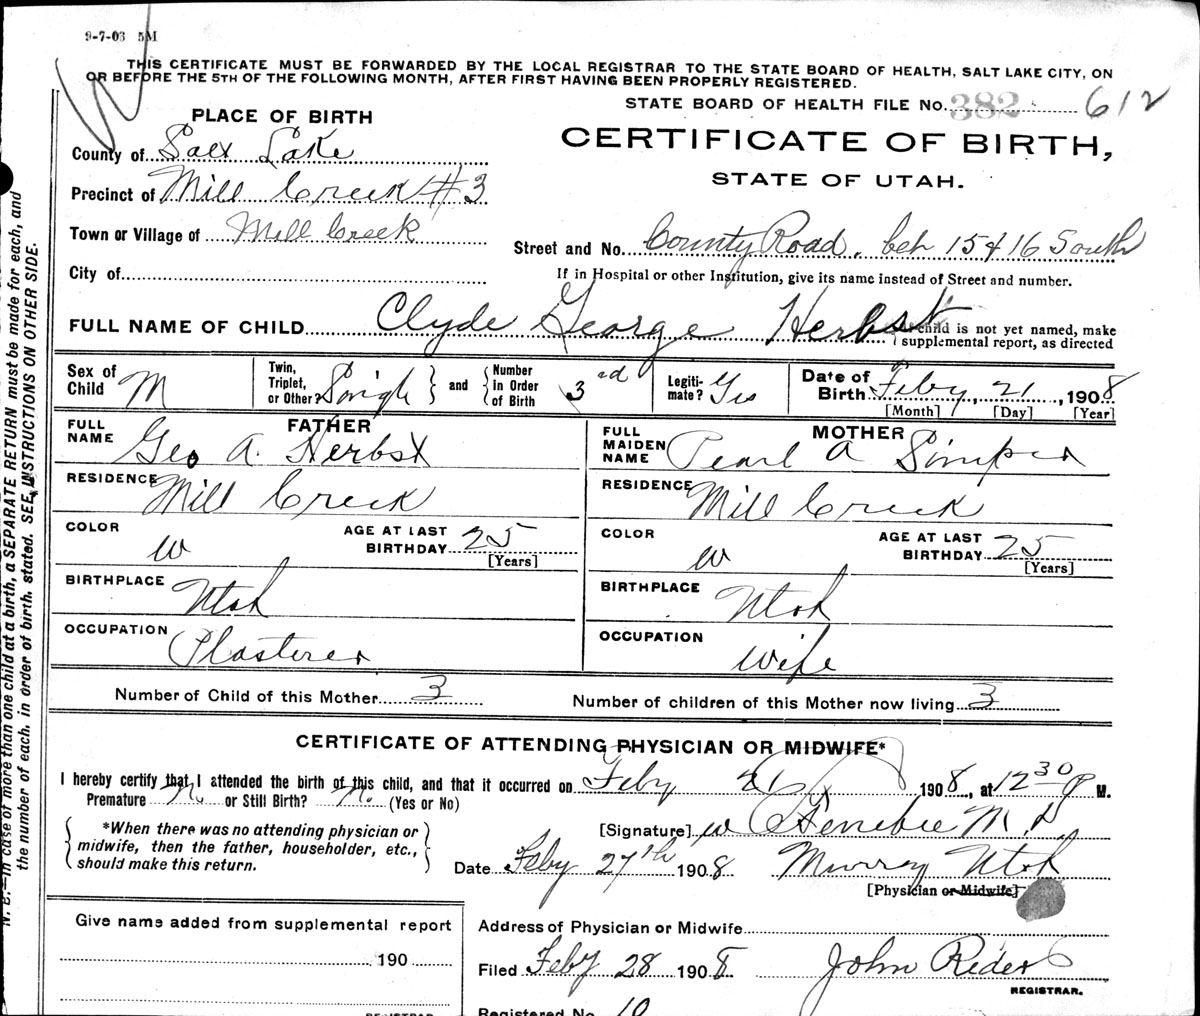 9-7-03 5M
THIS CERTIFICATE MUST BE FORWARDED BY THE LOCAL REGISTRAR TO THE STATE BOARD OF HEALTH, SALT LAKE CITY, ON
OR BEFORE THE 5TH OF THE FOLLOWING MONTH, AFTER FIRST HAVING BEEN PROPERLY REGISTERED.
STATE BOARD OF HEALTH FILE No. 382 612
PLACE OF BIRTH
CERTIFICATE OF BIRTH,
STATE OF UTAH.
County of Salt Lake
Precinct of Mill Creek #3
Town or Village of Mill Creek
Street and No. County Road. bet 15 & 16 South
City of
If in Hospital or other Institution, give its name instead of Street and number.
FULL NAME OF CHILD Clyde George Herbst
If child is not yet named, make
supplemental report, as directed
Sex of Child M
Twin, Triplet, or Other? Single and Number in Order of Birth 3rd
Legitimate? Yes
Date of Birth Feby 21, 1908
[Month] [Day] [Year]
FATHER
FULL NAME Geo A. Herbst
RESIDENCE Mill Creek
COLOR W
AGE AT LAST BIRTHDAY 25
[Years]
BIRTHPLACE Utah
OCCUPATION Plasterer
MOTHER
FULL MAIDEN NAME Pearl A
RESIDENCE Mill Creek
COLOR W
AGE AT LAST BIRTHDAY 25
[Years]
BIRTHPLACE Utah
OCCUPATION Wife
Number of Child of this Mother 3
Number of children of this Mother now living 3
CERTIFICATE OF ATTENDING PHYSICIAN OR MIDWIFE*
I hereby certify that I attended the birth of this child, and that it occurred on Feby 21 1908, at 12 30 P M.
Premature No or Still Birth? No. (Yes or No)
*When there was no attending physician or
midwife, then the father, householder, etc.,
should make this return.
[Signature] M. D.
Date Feby 27th 1908 Murray Utah
[Physician or Midwife]
Give name added from supplemental report
190
Address of Physician or Midwife
Filed Feby 28 1908 John Rider
REGISTRAR.
Registered No. 10
REGISTRAR
N. B.—In case of more than one child at a birth, a SEPARATE RETURN must be made for each, and
the number of each, in order of birth, stated. SEE INSTRUCTIONS ON OTHER SIDE.